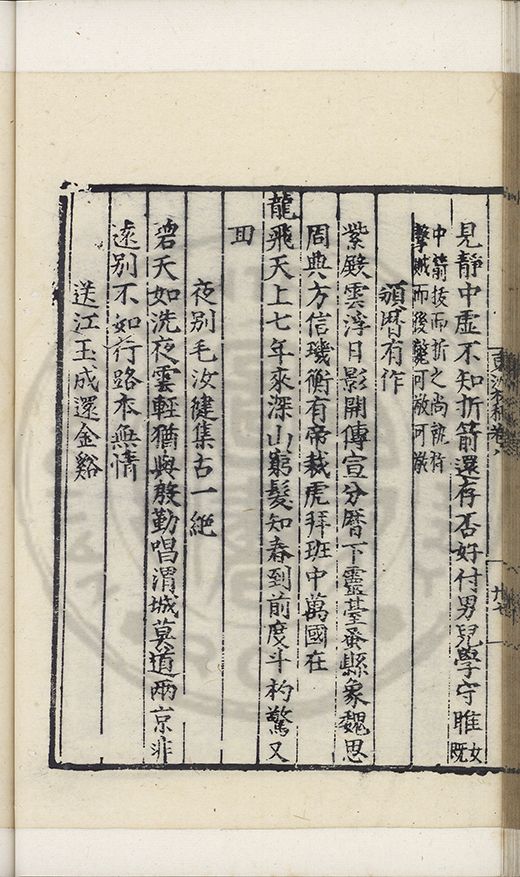 見靜中虛不知折箭還存否好付男兒學守睢女既
中箭拔而折之尚
擊賊而後斃可敬可
頒曆有作
紫殿雲浮日影開傳宣分曆下靈臺蚤縣象魏思
周典方信璣衡有帝裁虎拜班中萬國在
龍飛天上七年來深山窮髮知春到前度斗杓驚又
回
夜別毛汝健集古一絕
碧天如洗夜雲輕猶與殷勤唱渭城莫道兩京非
遠別不如行路本無情
送江玉成還金谿